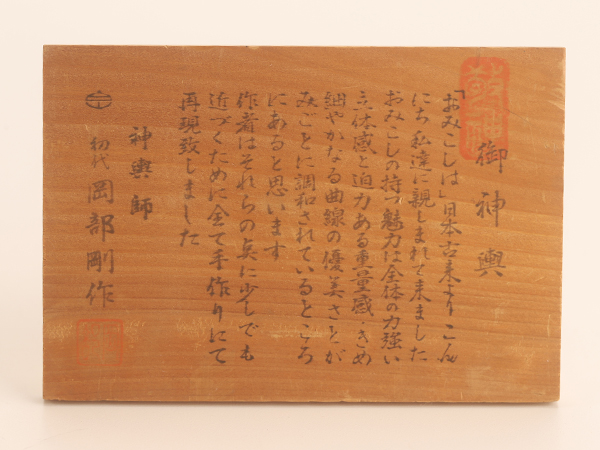 御神輿
「おみこしは」日本古来よりこん
にち私達に親しまれて来ました
おみこしの持つ魅力は全体の力強い
立体感と迫力ある重量感、きめ
細やかなる曲線の優美さとが
みごとに調和されているところ
にあると思います
作者はそれらの点に少しでも
近づくために全て手作りにて
再現致しました
神輿師
初代 岡部剛作